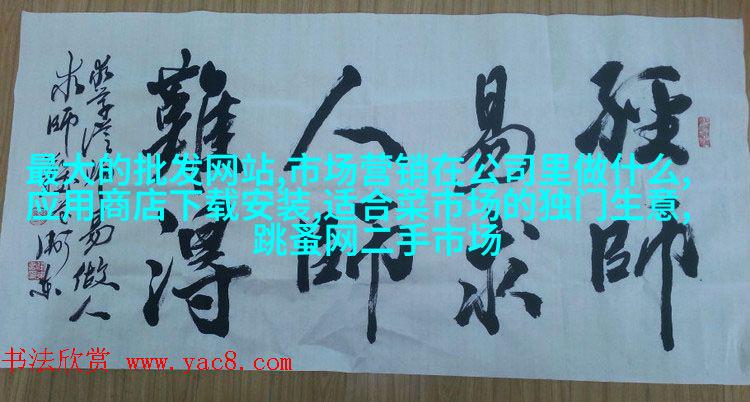 經師
易求
人師
難得
最大的批发网站,市场营销在公司里做什么,
应用商店下载安装,适合菜市场的独门生意,
跳蚤网二手市场
书法欣赏 www.yac8.com